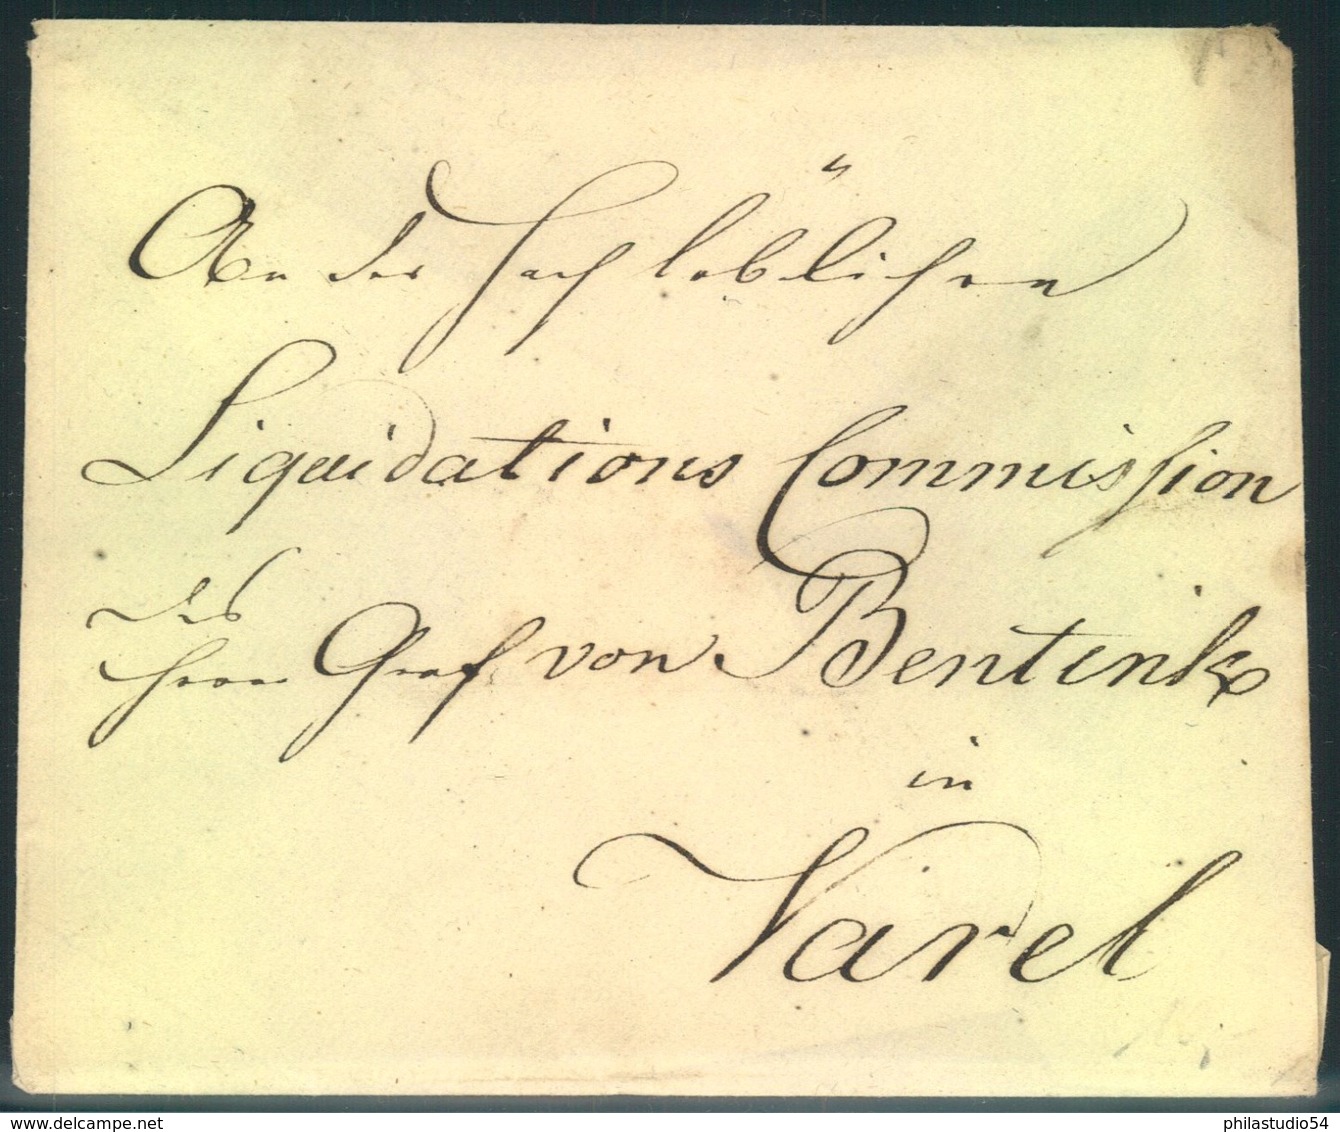 An der Hochlöblichen
Liquidations Commission
des
Herrn Graf von Bentink
in
Varel
www.delcampe.net
philastudio54